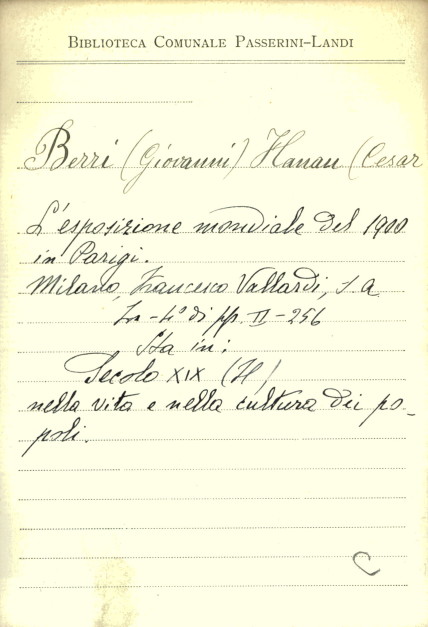 BIBLIOTECA COMUNALE PASSERINI-LANDI
Berri (Giovanni) Hanau (Cesar
L'esposizione mondiale del 1900
in Parigi.
Milano, Francesco Vallardi, s.a
In-4° di pp. II-256
Sta in:
Secolo XIX (Il)
nella vita e nella cultura dei po-
poli.
C